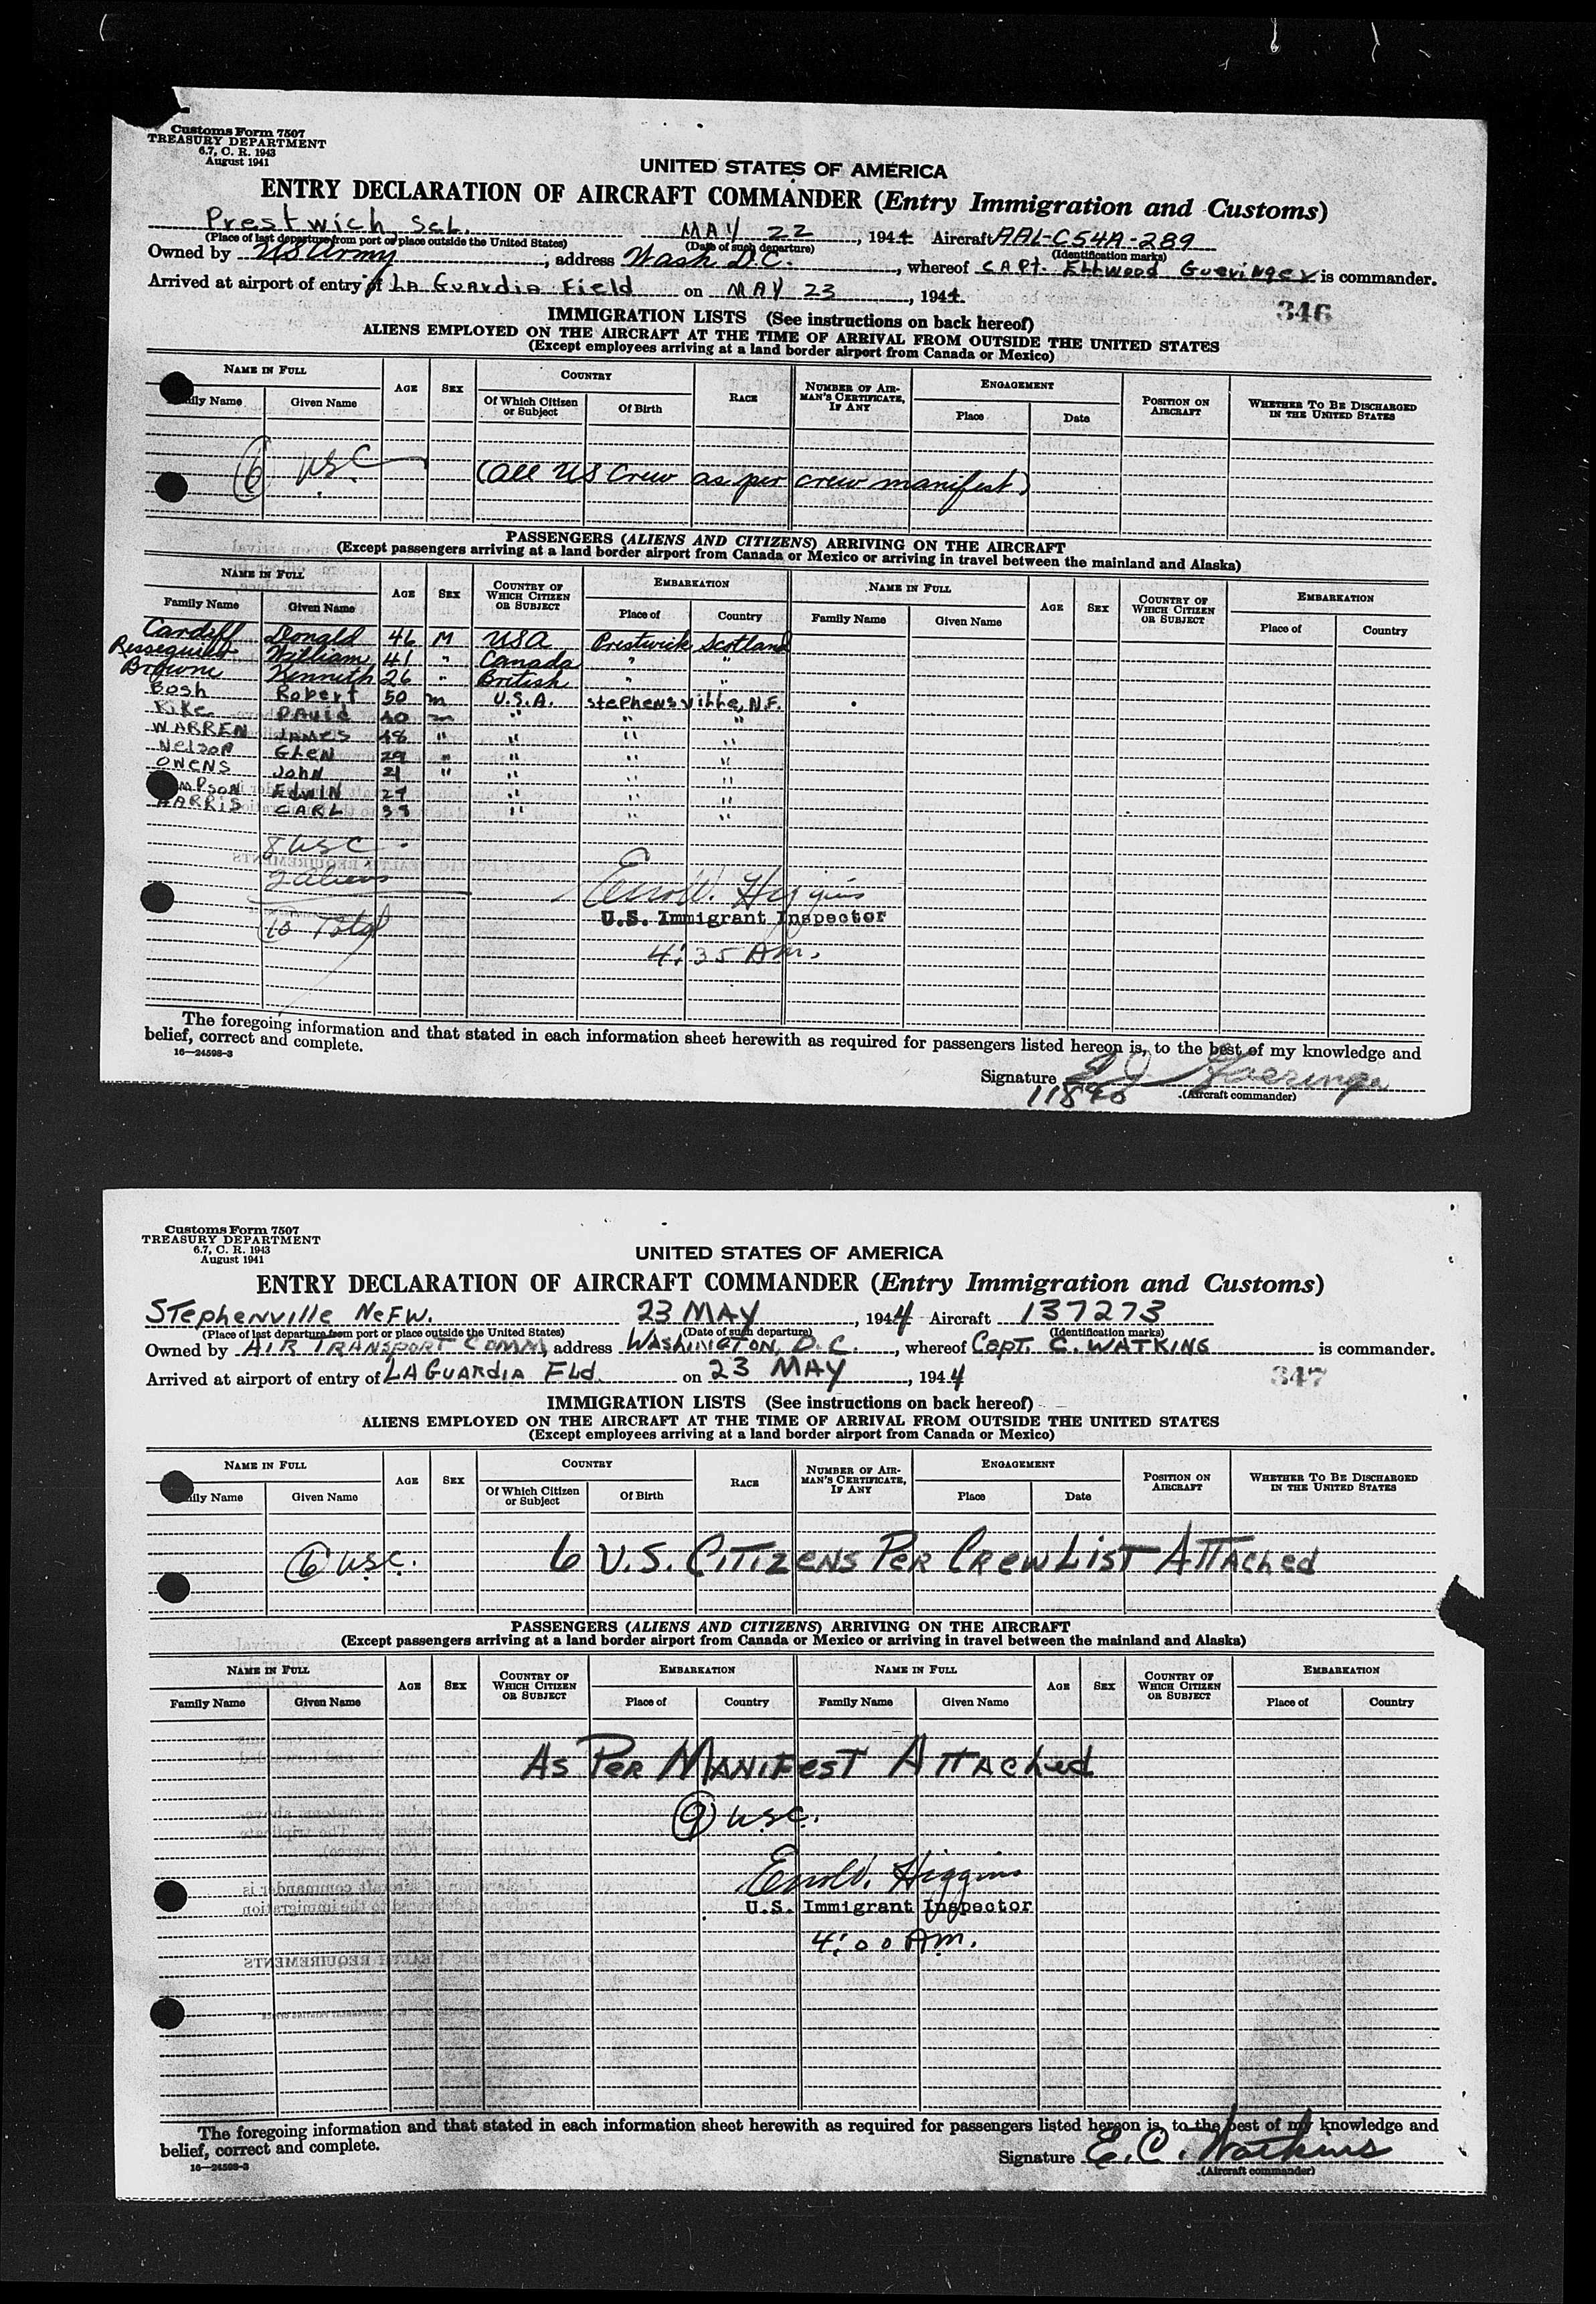 Customs Form 7507
TREASURY DEPARTMENT
6.7, C. R. 1943
August 1941
UNITED STATES OF AMERICA
ENTRY DECLARATION OF AIRCRAFT COMMANDER (Entry Immigration and Customs)
Prestwich, Scl. MAY 22, 1944 Aircraft AAL-C54A-289
(Place of last departure from port or place outside the United States) (Date of such departure) (Identification marks)
Owned by US Army, address Wash D.C., whereof CAPt. Ellwood Gueringer is commander.
Arrived at airport of entry of LA Guardia Field on MAY 23, 1944.
346
IMMIGRATION LISTS (See instructions on back hereof)
ALIENS EMPLOYED ON THE AIRCRAFT AT THE TIME OF ARRIVAL FROM OUTSIDE THE UNITED STATES
(Except employees arriving at a land border airport from Canada or Mexico)
NAME IN FULL AGE SEX COUNTRY RACE NUMBER OF AIRMAN'S CERTIFICATE, IF ANY ENGAGEMENT POSITION ON AIRCRAFT WHETHER TO BE DISCHARGED IN THE UNITED STATES
ily Name Given Name Of Which Citizen or Subject Of Birth Place Date
6 USC (All US Crew as per crew manifest)
PASSENGERS (ALIENS AND CITIZENS) ARRIVING ON THE AIRCRAFT
(Except passengers arriving at a land border airport from Canada or Mexico or arriving in travel between the mainland and Alaska)
NAME IN FULL AGE SEX COUNTRY OF WHICH CITIZEN OR SUBJECT EMBARKATION NAME IN FULL AGE SEX COUNTRY OF WHICH CITIZEN OR SUBJECT EMBARKATION
Family Name Given Name Place of Country Family Name Given Name Place of Country
Cardiff Donald 46 M USA Prestwick Scotland
William 41 " Canada " "
Browne Kennith 26 " British " "
Bosh Robert 50 m U.S.A. Stephensville, N.F.
Rike DAVID 40 m " " "
WARREN JAMES 48 " " " "
Nelson GLEN 29 " " " "
OWENS John 21 " " " "
MPSON EDWIN 27 " " "
HARRIS CARL 39 " " "
8 USC.
2 aliens
10 Total
Errol W. Higgins
U.S. Immigrant Inspector
4:35 Am.
The foregoing information and that stated in each information sheet herewith as required for passengers listed hereon is, to the best of my knowledge and
belief, correct and complete.
16—24598-3
Signature
(Aircraft commander)
11890
Customs Form 7507
TREASURY DEPARTMENT
6.7, C. R. 1943
August 1941
UNITED STATES OF AMERICA
ENTRY DECLARATION OF AIRCRAFT COMMANDER (Entry Immigration and Customs)
STephenville NeFW. 23 MAY, 1944 Aircraft 137273
(Place of last departure from port or place outside the United States) (Date of such departure) (Identification marks)
Owned by AIR TRANSPORT COMM, address WASHINGTON, D.C., whereof Capt. C. WATKINS is commander.
Arrived at airport of entry of LAGUARdIA FLd. on 23 MAY, 1944
347
IMMIGRATION LISTS (See instructions on back hereof)
ALIENS EMPLOYED ON THE AIRCRAFT AT THE TIME OF ARRIVAL FROM OUTSIDE THE UNITED STATES
(Except employees arriving at a land border airport from Canada or Mexico)
NAME IN FULL AGE SEX COUNTRY RACE NUMBER OF AIRMAN'S CERTIFICATE, IF ANY ENGAGEMENT POSITION ON AIRCRAFT WHETHER TO BE DISCHARGED IN THE UNITED STATES
ily Name Given Name Of Which Citizen or Subject Of Birth Place Date
6 USC. 6 U.S. CITIZENS PER CREW LIST ATTAched
PASSENGERS (ALIENS AND CITIZENS) ARRIVING ON THE AIRCRAFT
(Except passengers arriving at a land border airport from Canada or Mexico or arriving in travel between the mainland and Alaska)
NAME IN FULL AGE SEX COUNTRY OF WHICH CITIZEN OR SUBJECT EMBARKATION NAME IN FULL AGE SEX COUNTRY OF WHICH CITIZEN OR SUBJECT EMBARKATION
Family Name Given Name Place of Country Family Name Given Name Place of Country
As PER MANIFEST ATTAChed
9 USC.
Errol W. Higgins
U.S. Immigrant Inspector
4:00 Am.
The foregoing information and that stated in each information sheet herewith as required for passengers listed hereon is, to the best of my knowledge and
belief, correct and complete.
16—24598-3
Signature E. C. Watkins
(Aircraft commander)